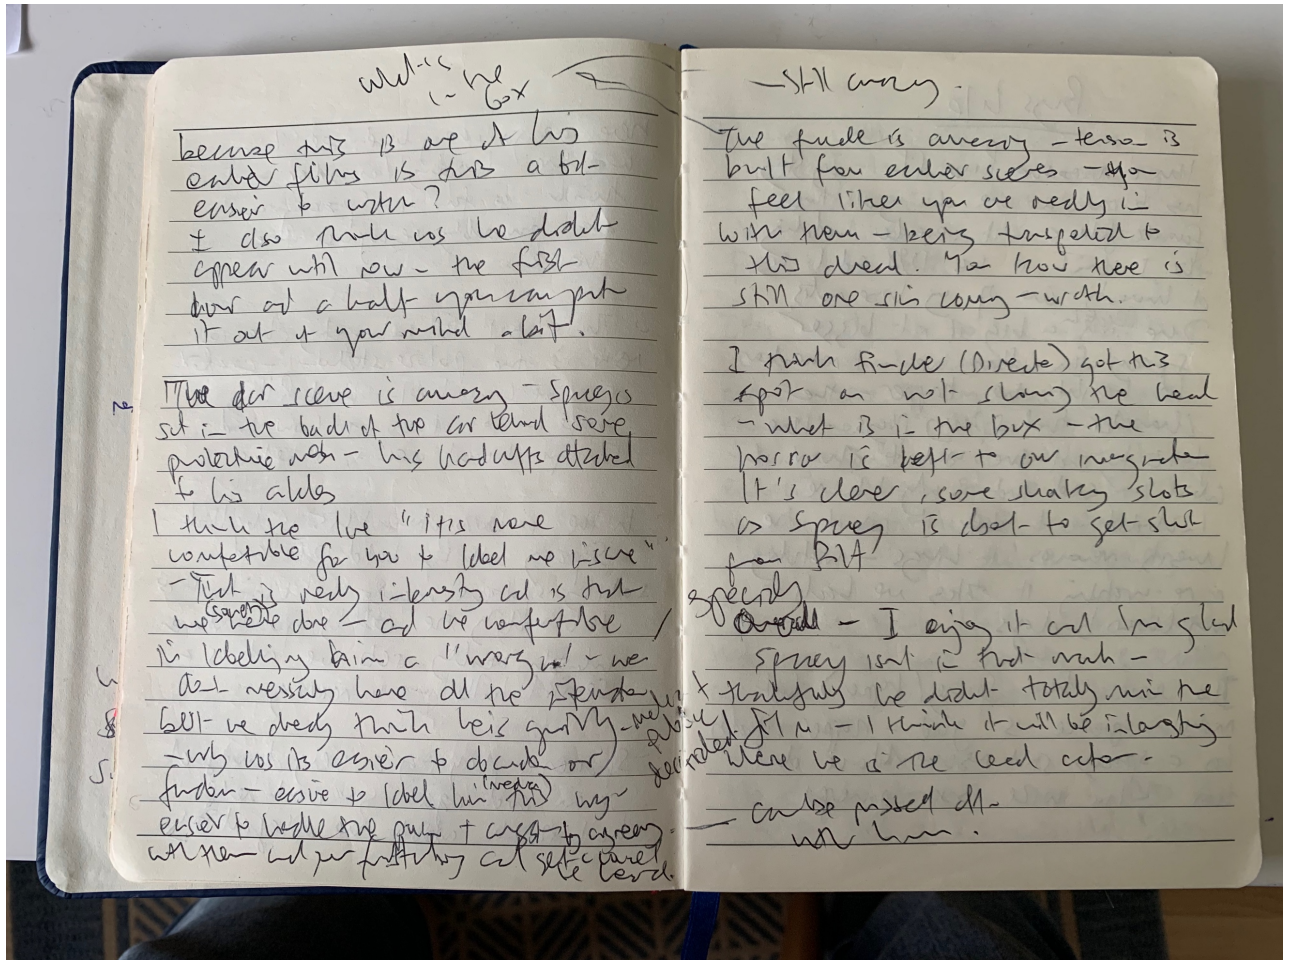 what is
in the
box
because this is one of his
earlier films is this a bit
easier to watch?
I also think cos he didnt
appear until now - the first
hour and a half you can put
it out of your mind a bit.
The car scene is amazing - Spacey is
sat in the back of the car behind some
protective mesh - his handcuffs attached
to his ankles
I think the line "its more
comfortable for you to label me insane"
- That is really interesting and is that
(society)
we have done - and we comfortable
in labelling him a "wrong un" - we
dont necessarily have all the
but we already think he is guilty -
public
decided
- why cos its easier to
- easier to label him this way
(media)
easier to handle the pain + agreeing
with them and
- Still amazing.
The finale is amazing - tension is
built from earlier scenes - you
feel like you are really in
with them - being transported to
this dread. You know there is
still one sin coming - wrath.
I think Fincher (Director) got this
spot on not showing the head
- what is in the box - the
horror is left to our imagination
It's clever, some shaky shots
as Spacey is about to get shot
from Pitt
Specially
- I enjoy it and Im glad
Spacey isnt in that much -
thankfully he didnt totally ruin the
film - I think it will be interesting
where he is the lead actor -
can be pissed off
with him.